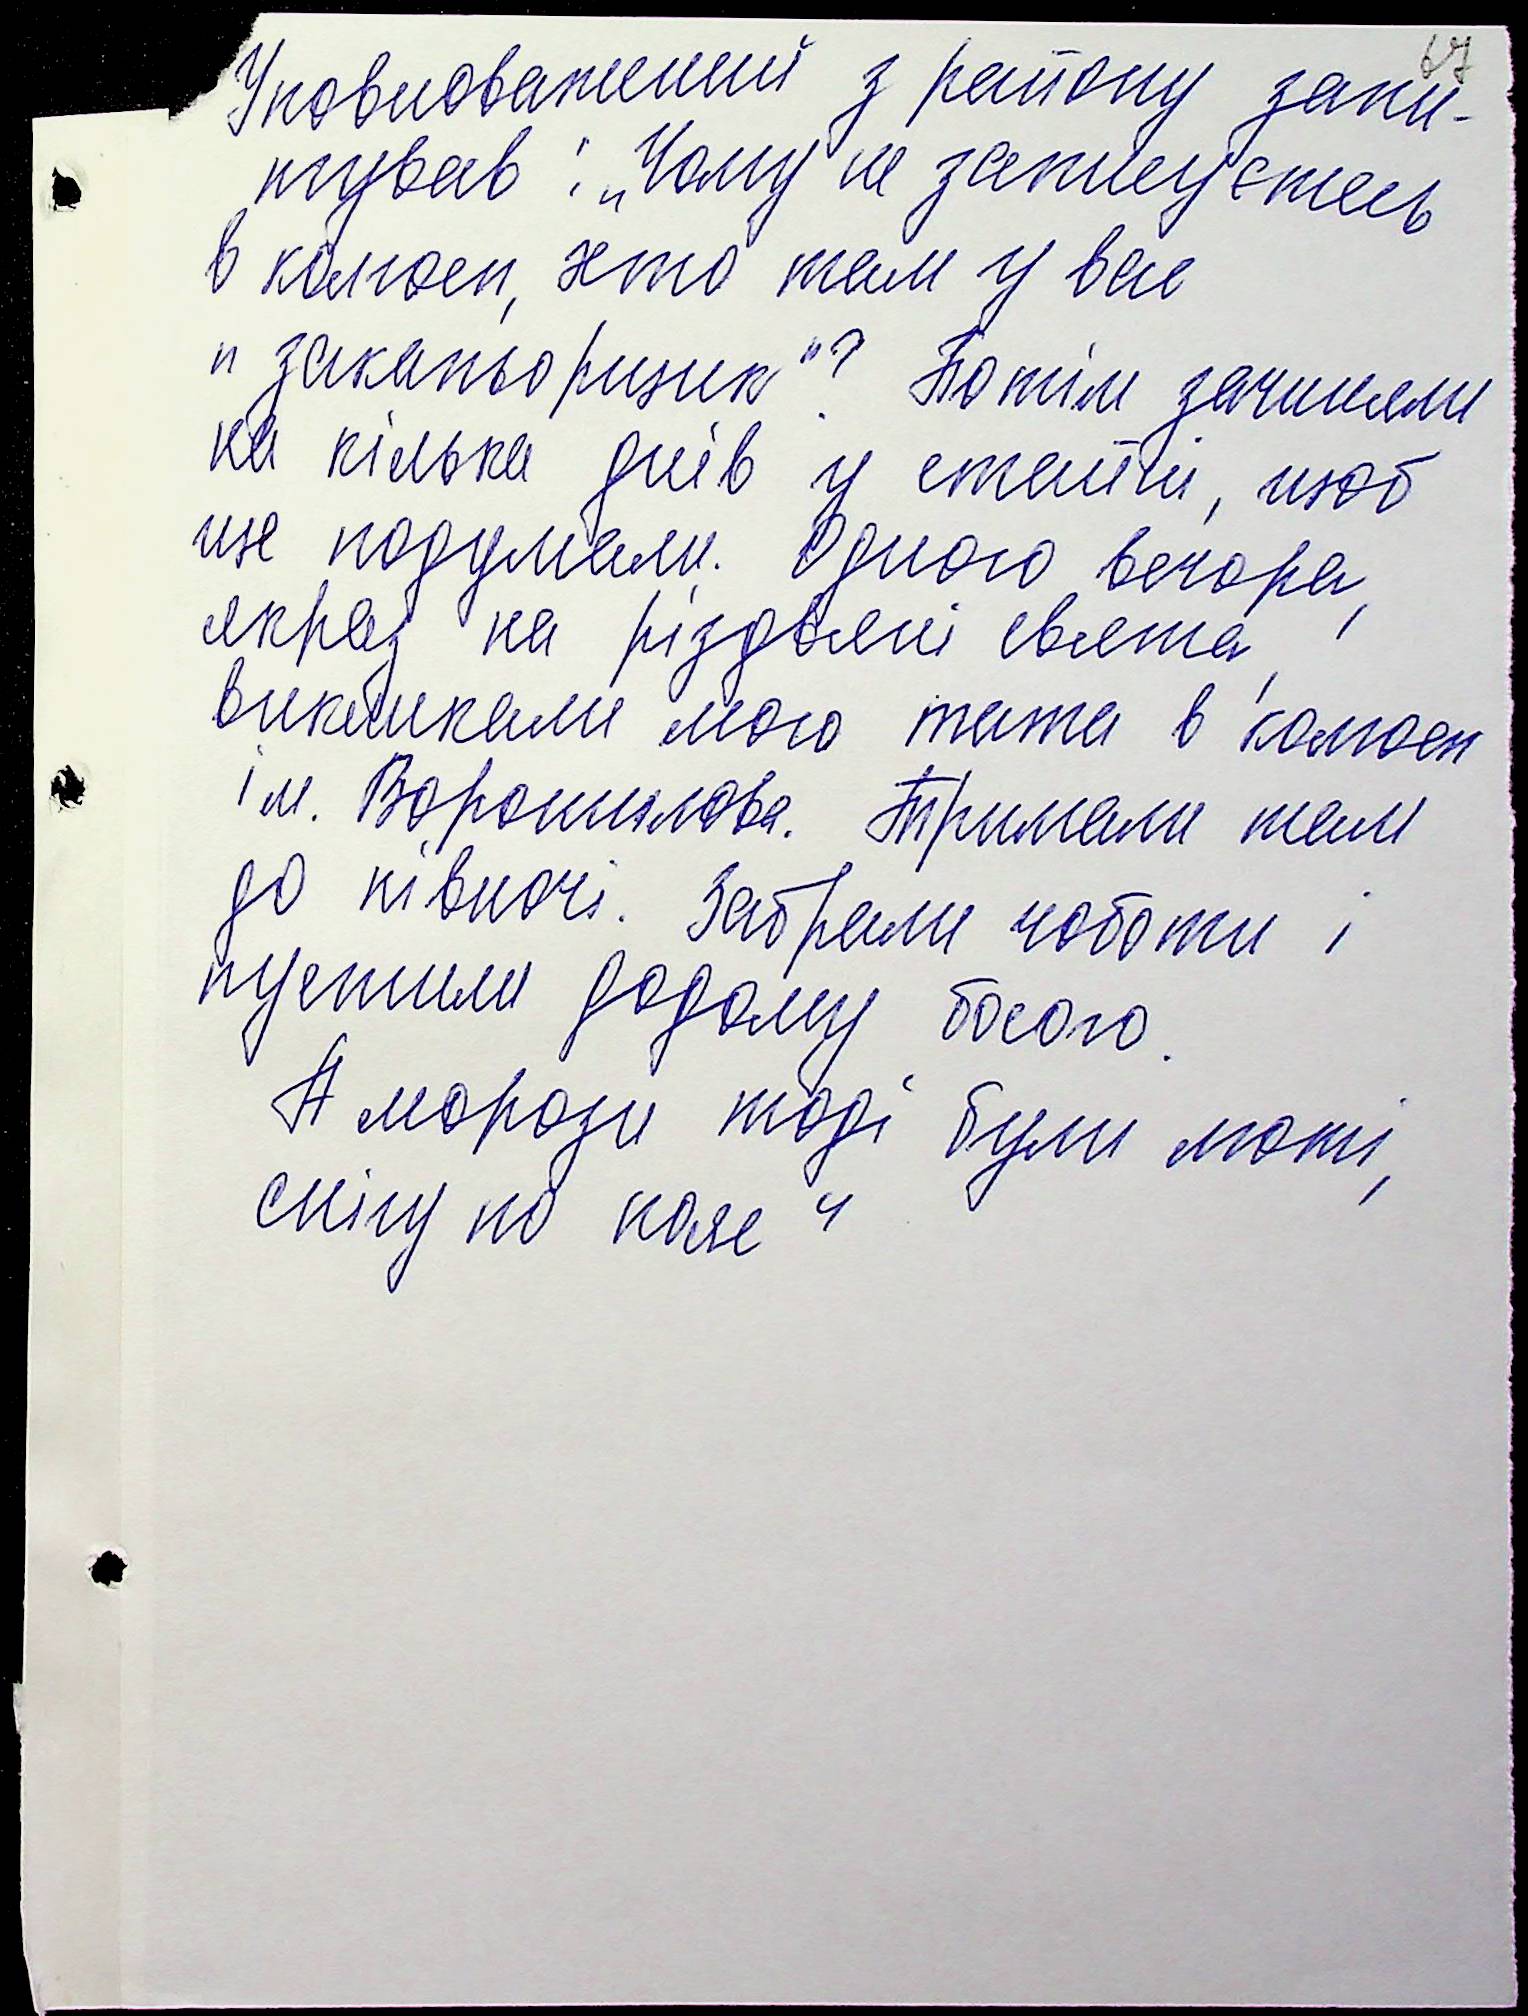 67
Уповноважений з району запи-
тував: „Чому не записуєтесь
в колгосп, хто там у вас
„закапьорщик"? Потім зачиняли
на кілька днів у стайні, щоб
ще подумали. Одного вечора,
якраз на різдвяні свята,
викликали мого тата в колгосп
ім. Ворошилова. Тримали там
до півночі. Забрали чоботи і
пустили додому босого.
А морози тоді були люті,
снігу по пояс"